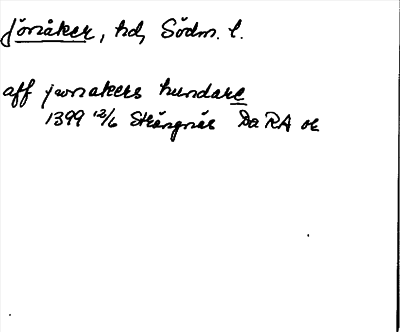 Jönåker, hd, Södm. l.
aff jwnakers hundare
1399 12/6 Strängnäs Da RA or